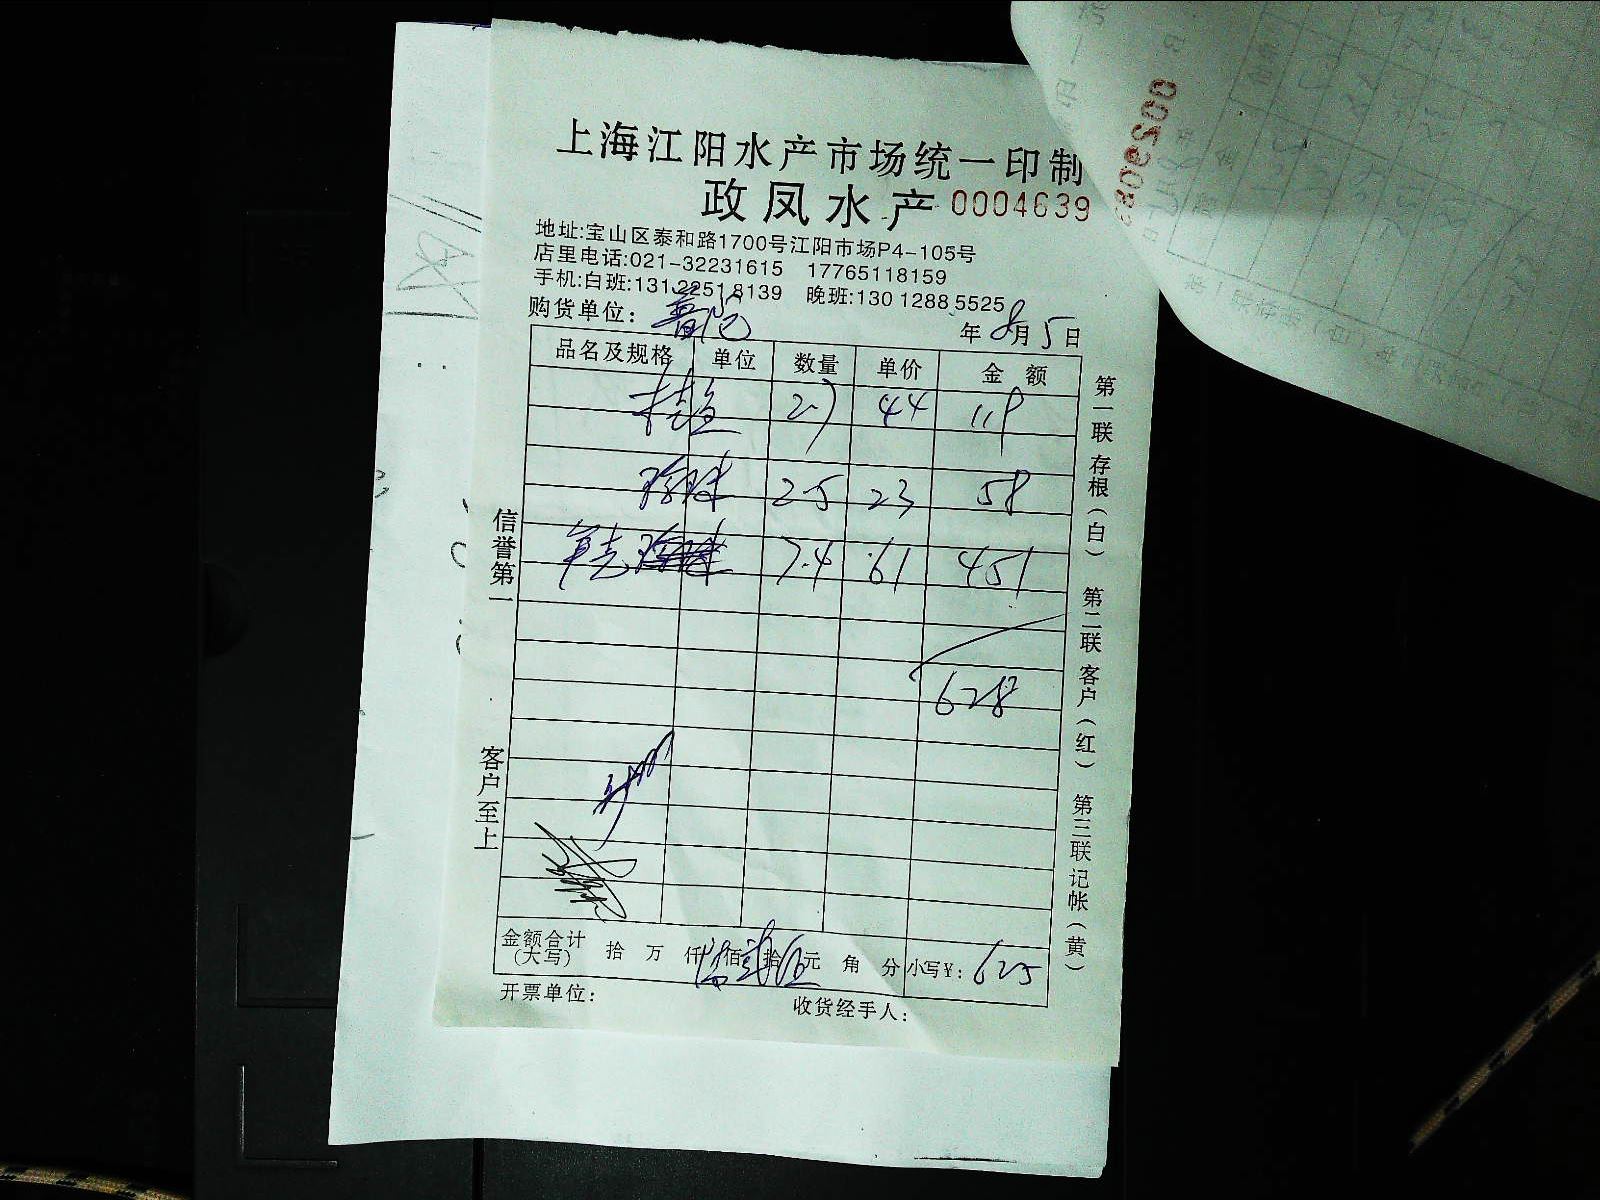 上海江阳水产市场统一印制
政凤水产 0004639
地址:宝山区泰和路1700号江阳市场P4-105号
店里电话:021-32231615 17765118159
手机:白班:131 2251 8139 晚班:130 1288 5525
购货单位: 年 8月 5日
品名及规格 单位 数量 单价 金额
桂鱼 2.7 44 118
珍珠 2.5 23 58
7.4 61 451
628
金额合计(大写) 拾 万 仟 陆佰 贰拾 伍元 角 分 小写¥: 625
开票单位: 收货经手人:
信誉第一
客户至上
第一联 存根(白) 第二联 客户(红) 第三联 记帐(黄)